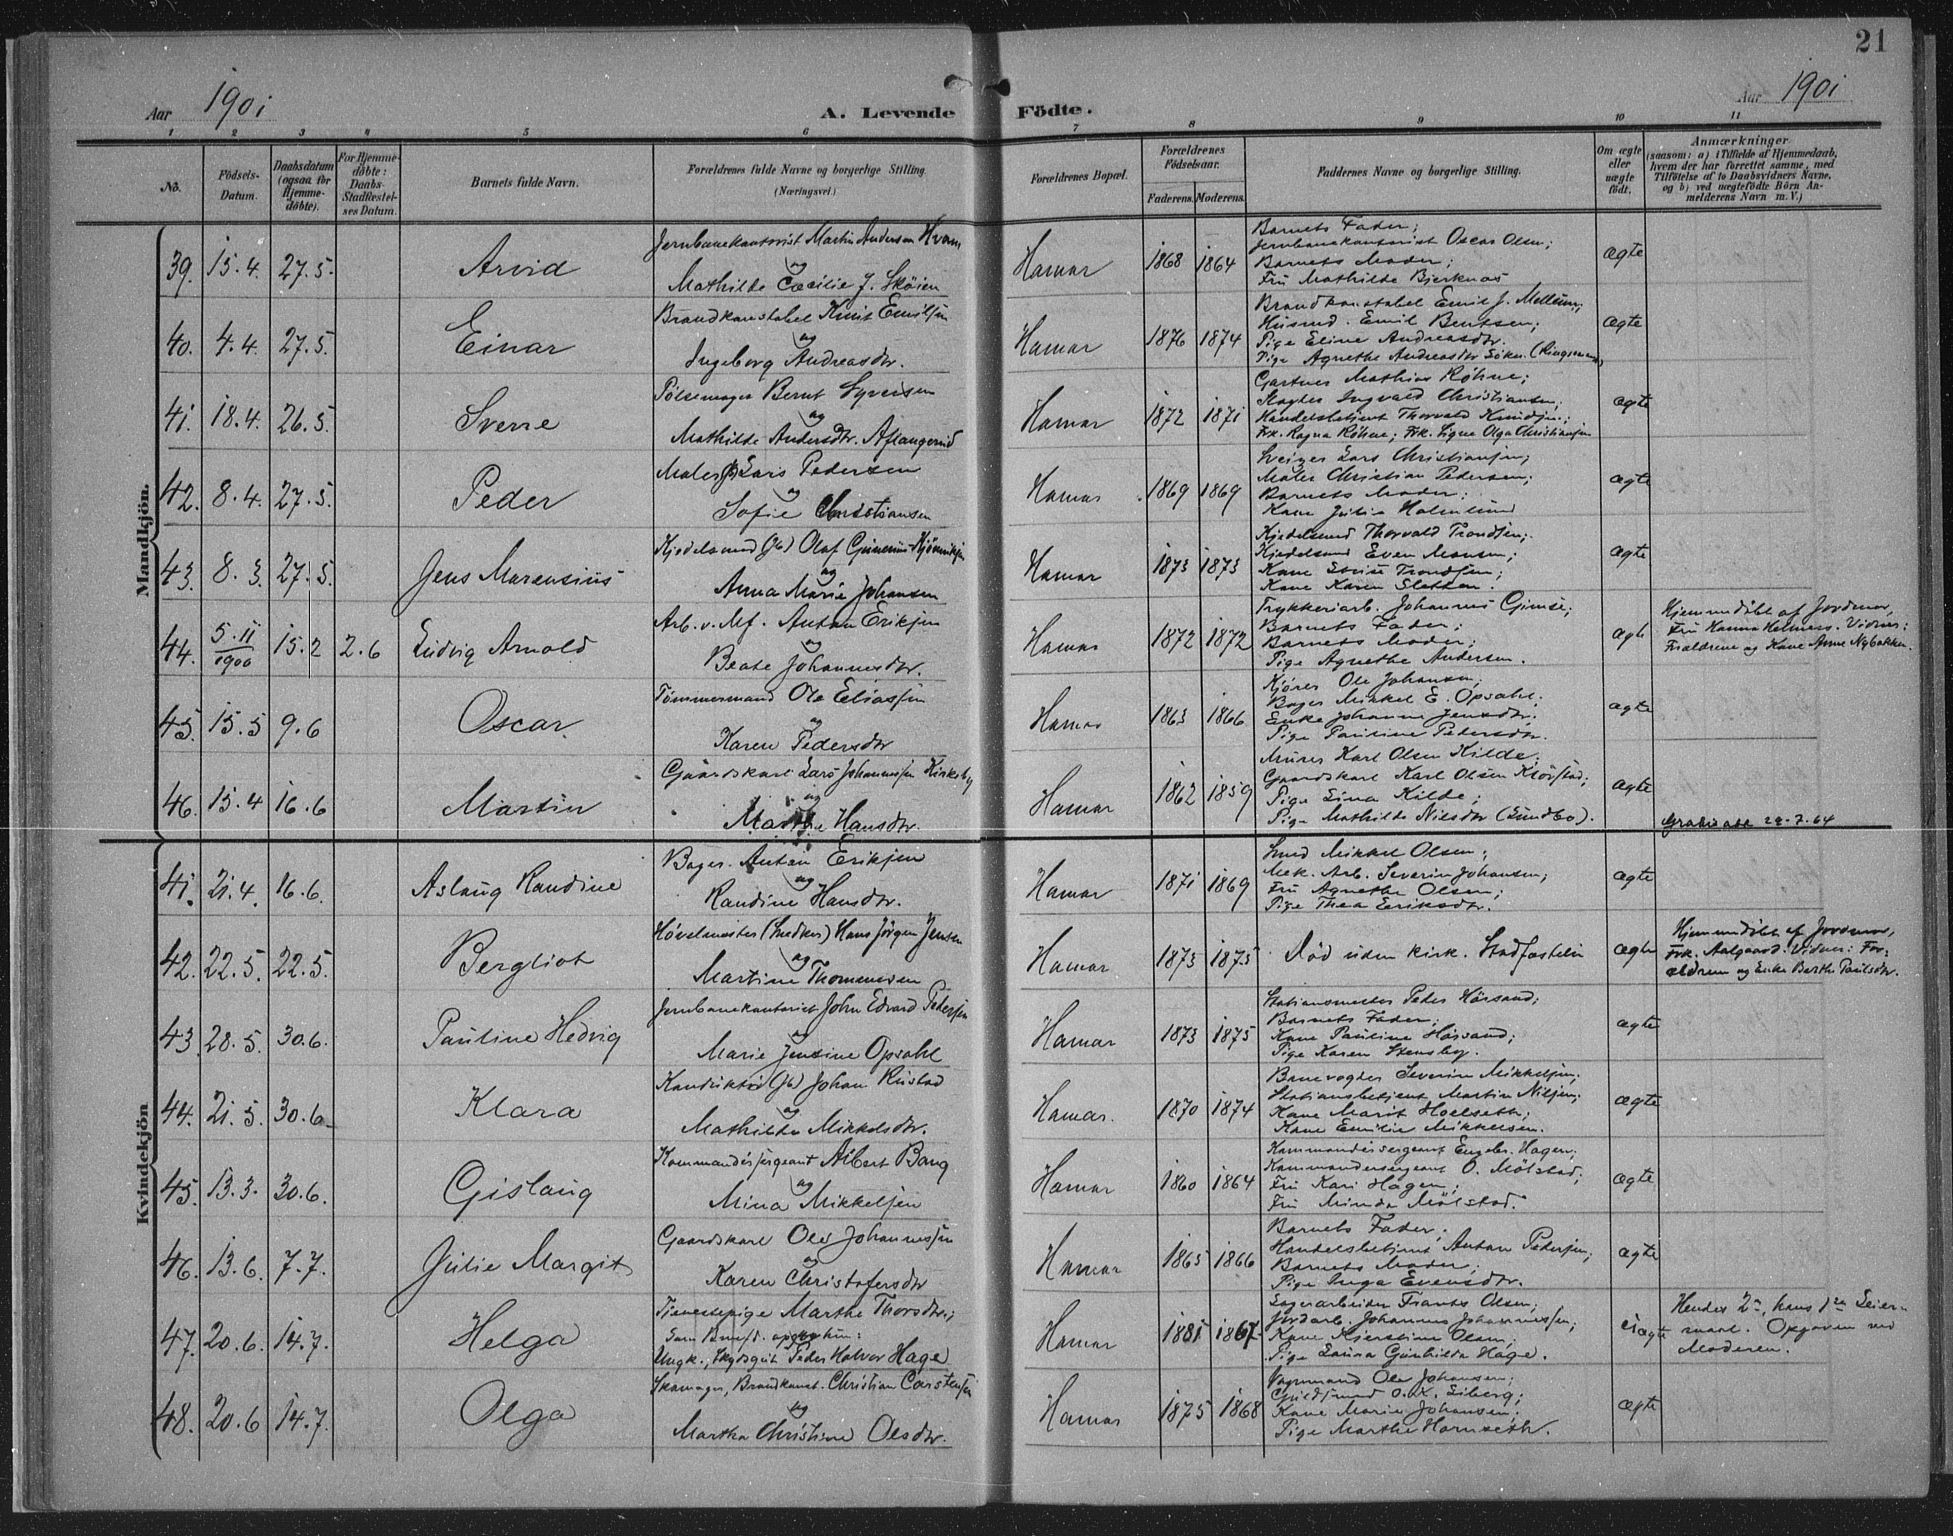 21
Aar 1901
A. Levende Födte.
Aar 1901
1 2 3 4 5 6 7 8 9 10 11
No.
Födsels-Datum.
Daabsdatum (ogsaa for Hjemme-döbte).
For Hjemme-döbte: Daabs-Stadfæstel-ses Datum.
Barnets fulde Navn.
Forældrenes fulde Navne og borgerlige Stilling (Næringsvei.)
Forældrenes Bopæl.
Forældrenes Födselsaar.
Faderens. Moderens.
Faddernes Navne og borgerlige Stilling.
Om ægte eller uægte födt.
Anmærkninger
(saasom: a) i Tilfælde af Hjemmedaab,
hvem der har forrettet samme, med
Tilföielse af to Daabsvidners Navne,
og b) ved uægtefödte Börn An-
melderens Navn m. V.)
Mandkjön.
39. 15.4. 27.5. Arvid
Jernbanekontorist Martin Andersen Hvam
og
Mathilde Cæcilie J. Sköien
Hamar 1868 1864
Barnets Fader;
Jernbanekontorist Oscar Olsen;
Barnets Moder;
Fru Mathilde Bjerknæs
ægte
40. 4.4. 27.5. Einar
Brandkonstabel Knut Emilsen
og
Ingeborg Andreasdtr.
Hamar 1876 1874
Brandkonstabel Emil J. Mellum;
Husmd. Emil Bentsen;
Pige Eline Andreasdtr.
Pige Agnethe Andreasdtr
ægte
41. 18.4. 26.5. Sverre
Pölsemager Bernt Syversen
og
Mathilde Andersdtr.
Hamar 1872 1871
Gartner Mathias Röhne;
Slagter Ingvald Christiansen;
Handelsbetjent Thorvald Knudsen;
Frk. Ragna Röhne; Frk. Signe Olga Christiansen
ægte
42. 8.4. 27.5. Peder
Maler Lars Pedersen
og
Sofie Christiansen
Hamar 1869 1869
Lars Christiansen;
Maler Christian Pedersen;
Barnets Moder;
Kone Julie
ægte
43. 8.3. 27.5. Jens Marensius
Kjedelsmed (Jb) Olaf
og
Anna Marie Johansen
Hamar 1873 1873
Kjedelsmed Thorvald Trondsen;
Kjedelsmd Even Monsen;
Kone Trondsen;
Kone Karen Sletten
ægte
44. 5.11 1900 15.2 2.6 Ludvig Arnold
Arb. v. Mf. Anton Eriksen
og
Beate Johannesdtr.
Hamar 1872 1872
Trykkeriarb. Johannes Gimse;
Barnets Fader;
Barnets Moder;
Pige Agnethe Andersen.
ægte
Hjemmedöbt af Jordmor,
Fru Hanna Helmers. Vidner:
Forældrene og Kone Anne Nybakken.
45. 15.5 9.6 Oscar.
Tömmermand Ole Eliassen
og
Karen Pedersdtr
Hamar 1863 1866
Kjörer Ole Johansen;
Bager Mikkel E. Opsahl;
Enke Johanne Jensdtr;
Pige Pauline Pedersdtr.
ægte
46. 15.4 16.6 Martin
Gaardskarl Lars Johannessen Kirkeby
og
Marthe Hansdtr.
Hamar 1862 1859
Murer Karl Olsen Kilde;
Gaardskarl Karl Olsen;
Pige Lina Kilde;
Pige Mathilde Nilsdtr (Lundbo).
ægte
Gratisatt. 28-7.64
Kvindekjön
41. 21.4. 16.6. Aslaug Randine
Bager Anton Eriksen
og
Randine Hansdtr.
Hamar 1871 1869
Smed Mikkel Olsen;
Mek. Arb. Severin Johansen;
Fru Agnethe Olsen;
Pige Thea Eriksdtr.
ægte
42. 22.5. 22.5. Bergliot
Hövelmester (Snedker) Hans Jörgen Jensen
og
Martine Thomassen
Hamar 1873 1875
Död uden kirk. Stadfæstelse
ægte
Hjemmedöbt af Jordmor,
Frk. Aalgaard. Vidner: For-
ældrene og Enke Berthe Paulsdtr.
43. 28.5. 30.6. Pauline Hedvig
Jernbanekontorist John Edvard Pedersen
og
Marie Jensine Opsahl
Hamar 1873 1875
Stationsmester Peder Hörsand;
Barnets Fader;
Kone Pauline Hörsand;
Pige Karen Stensby.
ægte
44. 21.5. 30.6. Klara
Konduktör (Jb) Johan Rustad
og
Mathilde Mikkelsdtr.
Hamar. 1870 1874
Banevogter Severin Mikkelsen;
Stationsbetjent Martin Nilsen;
Kone Marit Hoelseth;
Kone Emilie Mikkelsen.
ægte
45. 13.3. 30.6. Gislaug
Kommandersergeant Albert Bang
og
Mina Mikkelsen
Hamar 1860 1864
Kommandersergeant Hagen;
Kommandersergeant O. Mölstad;
Fru Kari Hagen;
Fru Minda Mölstad.
ægte
46. 13.6. 7.7. Julie Margit
Gaardskarl Ole Johannessen
og
Karen Christofersdtr
Hamar 1865 1866
Barnets Fader;
Handelsbetjent Anton Pedersen;
Barnets Moder;
Pige Inga Evensdtr.
ægte
47. 20.6. 14.7. Helga
Tjenestepige Marthe Thorsdtr.;
Som Barnef. opgav hun:
Ungk., Skydsgut Peder Halvor Hage
Hamar 1881 1867
Sagarbeider Frants Olsen;
Jordarb. Johannes Johannessen;
Kone Kjerstine Olsen;
Pige Laura Gunhilda Hage.
uægte
Hendes 2det, hans 1ste Leier-
maal. Opgaven ved
Moderen.
48. 20.6 14.7. Olga
Skomager, Brandkonst. Christian Carstensen
og
Martha Christine Olsdtr.
Hamar 1875 1868
Vognmand Ole Johansen;
Guldsmed O. K. Liberg;
Kone Marie Johansen;
Pige Marthe Hornseth.
ægte